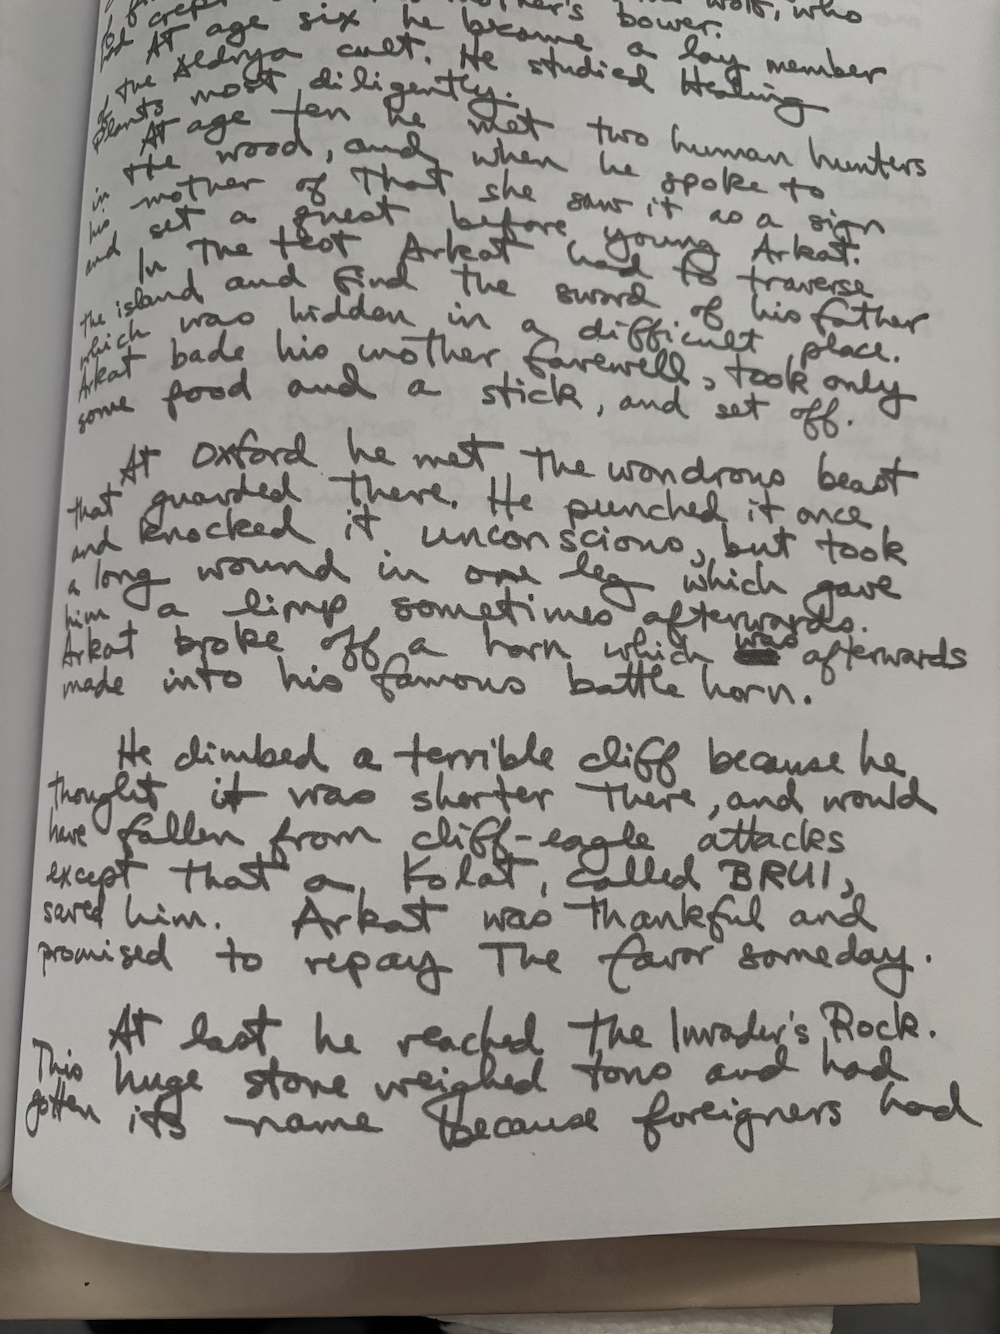 had crept mother's bower.
wolf, who
At age six he became a lay member
of the Aldrya cult. He studied Healing
Plants most diligently.
At age ten he met two human hunters
in the wood, and, when he spoke to
his mother of that she saw it as a sign
and set a quest before young Arkat.
In the test Arkat had to traverse
the island and find the sword of his father
which was hidden in a difficult place.
Arkat bade his mother farewell, took only
some food and a stick, and set off.
At Oxford he met the wondrous beast
that guarded there. He punched it once
and knocked it unconscious, but took
a long wound in one leg which gave
him a limp sometimes afterwards.
Arkat broke off a horn which was afterwards
made into his famous battle horn.
He climbed a terrible cliff because he
thought it was shorter there, and would
have fallen from cliff-eagle attacks
except that a Kolat, called BRUI,
saved him. Arkat was thankful and
promised to repay the favor someday.
At last he reached the Invader's Rock.
This huge stone weighed tons and had
gotten its name because foreigners had